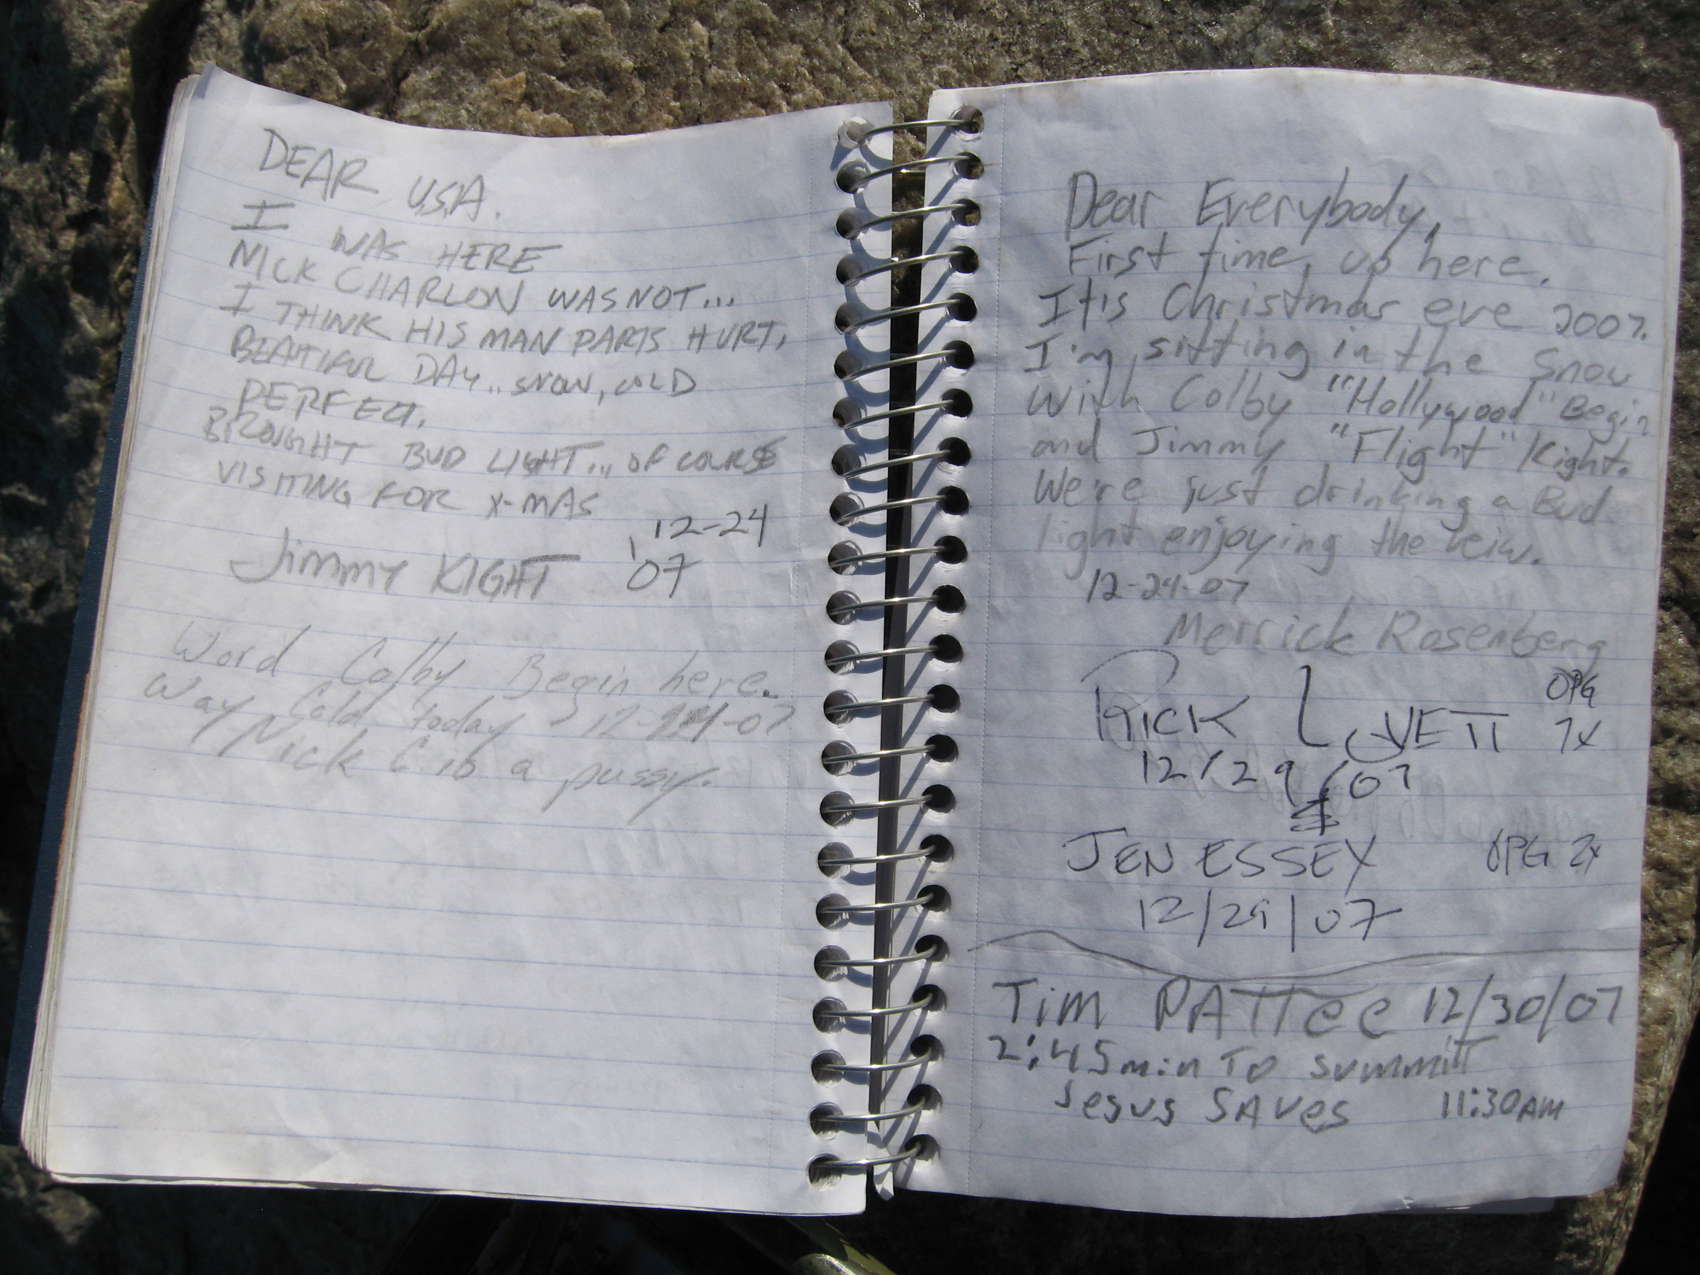 DEAR USA.
I WAS HERE
NICK CHARLON WAS NOT...
I THINK HIS MAN PARTS HURT.
BEAUTIFUL DAY.. SNOW, COLD
PERFECT.
BROUGHT BUD LIGHT... OF COURSE
VISITING FOR X-MAS
Jimmy KIGHT 12-24
'07
Word Colby Begin here.
Way Cold today 12-24-07
Nick C is a pussy.
Dear Everybody,
First time up here.
It's Christmas eve 2007.
I'm sitting in the Snow
With Colby "Hollywood" Begin
and Jimmy "Flight" Kight.
We're just drinking a Bud
light enjoying the veiw.
12-24-07
Merrick Rosenberg
RICK LOVETT OPG 7x
12/29/07
JEN ESSEX OPG 2x
12/29/07
Tim PATTee 12/30/07
2:45 min To Summitt
Jesus SAVes 11:30 AM